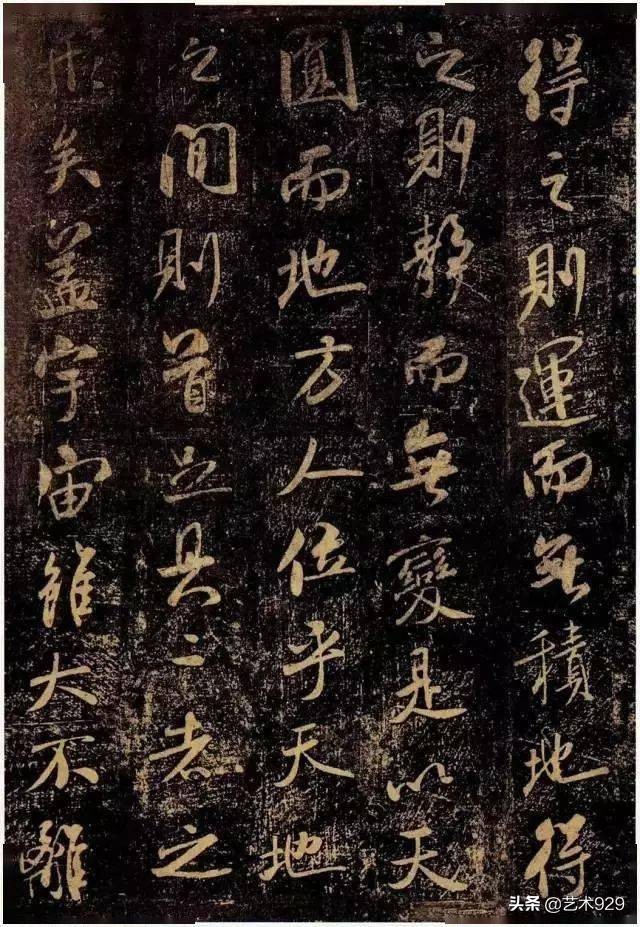 得之則運而無積地得
之則靜而無變是以天
圓而地方人位乎天地
之間則首足具二者之
形矣蓋宇宙雖大不離
头条 @艺术929